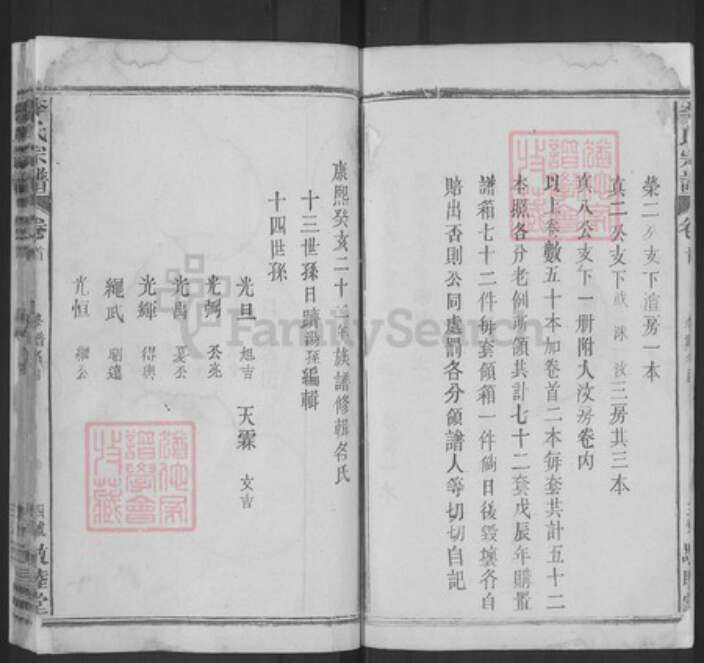 榮二公支下溰房一本
真二公支下 三房共三本
真八公支下一册附大汶房卷内
以上叁數五十本加卷首二本每套共計五十二
本照各分老例 領共計七十二套戊辰年購置
譜箱七十二件每套領箱一件倘日後毀壞各自
賠出否則公同處罰各分領譜人等切切自記
李氏宗譜
卷首
康熙癸亥二十二年族譜修輯名氏
十三世孫日躋 編輯
十四世孫
光旦 旭吉 天霖 文吉
光弼 公亮
光昌 公
光輝 得輿
繩武 紹遠
光恒 公
李氏宗譜
卷首
敦睦堂
FamilySearch